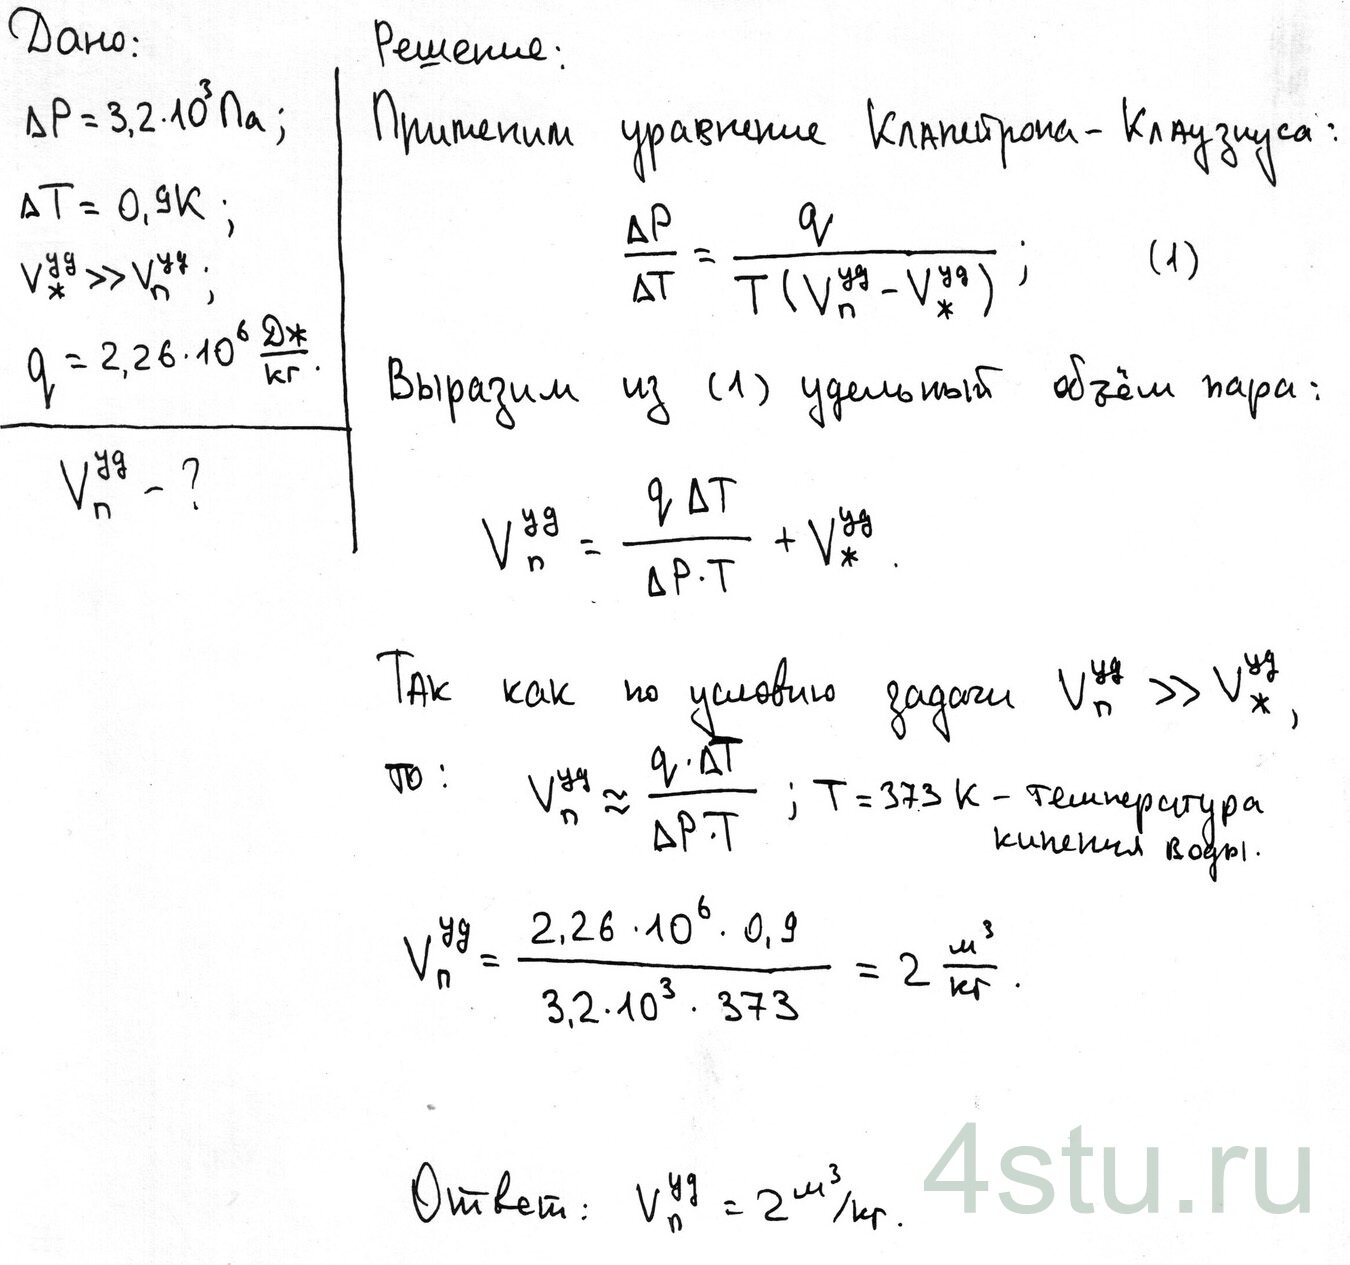 Дано:
ΔP = 3,2·10³ Па;
ΔT = 0,9К;
V*^уд >> Vп^уд;
q = 2,26·10⁶ Дж/кг.
Vп^уд - ?
Решение:
Применим уравнение Клапейрона-Клаузиуса:
ΔP/ΔT = q/(T(Vп^уд - V*^уд)); (1)
Выразим из (1) удельный объём пара:
Vп^уд = qΔT/(ΔP·T) + V*^уд.
Так как по условию задачи Vп^уд >> V*^уд,
то: Vп^уд ≈ q·ΔT/(ΔP·T); T = 373 К - температура
кипения воды.
Vп^уд = (2,26·10⁶·0,9)/(3,2·10³·373) = 2 м³/кг.
Ответ: Vп^уд = 2 м³/кг.
4stu.ru